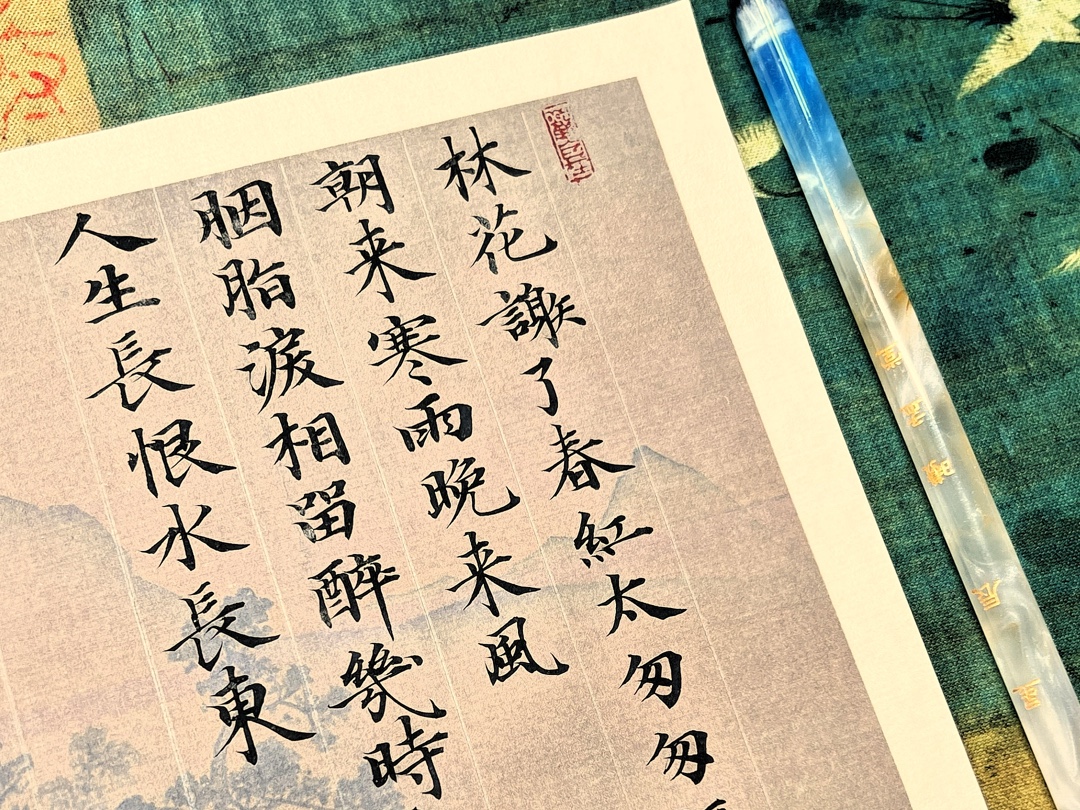 林花謝了春紅太匆匆
朝来寒雨晩来風
胭脂淚相留醉幾時
人生長恨水長東